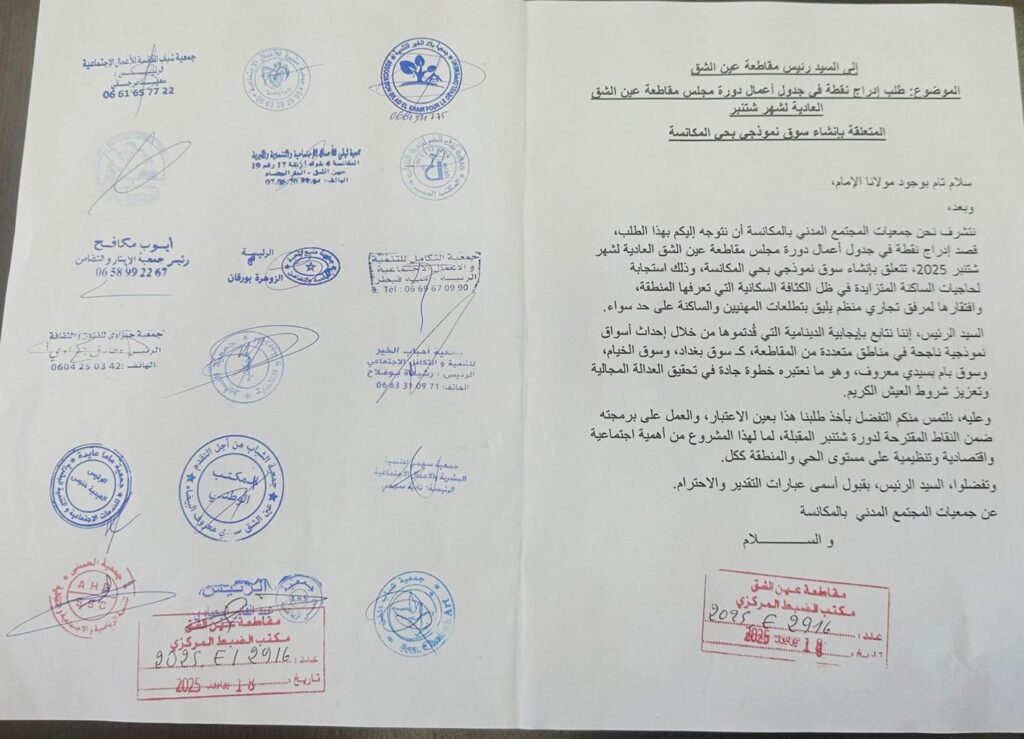 إلى السيد رئيس مقاطعة عين الشق
الموضوع: طلب إدراج نقطة في جدول أعمال دورة مجلس مقاطعة عين الشق
العادية لشهر شتنبر
المتعلقة بإنشاء سوق نموذجي بحي المكانسة
سلام تام بوجود مولانا الإمام،
وبعد،
نتشرف نحن جمعيات المجتمع المدني بالمكانسة أن نتوجه إليكم بهذا الطلب،
قصد إدراج نقطة في جدول أعمال دورة مجلس مقاطعة عين الشق العادية لشهر
شتنبر 2025، تتعلق بإنشاء سوق نموذجي بحي المكانسة، وذلك استجابة
لحاجيات الساكنة المتزايدة في ظل الكثافة السكانية التي تعرفها المنطقة،
وافتقارها لمرفق تجاري منظم يليق بتطلعات المهنيين والساكنة على حد سواء.
السيد الرئيس، إننا نتابع بإيجابية الدينامية التي قُدتموها من خلال إحداث أسواق
نموذجية ناجحة في مناطق متعددة من المقاطعة، كـ سوق بغداد، وسوق الخيام،
وسوق بام بسيدي معروف، وهو ما نعتبره خطوة جادة في تحقيق العدالة المجالية
وتعزيز شروط العيش الكريم.
وعليه، نلتمس منكم التفضل بأخذ طلبنا هذا بعين الاعتبار، والعمل على برمجته
ضمن النقاط المقترحة لدورة شتنبر المقبلة، لما لهذا المشروع من أهمية اجتماعية
واقتصادية وتنظيمية على مستوى الحي والمنطقة ككل.
وتفضلوا، السيد الرئيس، بقبول أسمى عبارات التقدير والاحترام.
عن جمعيات المجتمع المدني بالمكانسة
و الســــــــلام
مقاطعة عين الشق
مكتب الضبط المركزي
عدد: 2025 E 2916
تاريخ: 18 2025
جمعية بلاد الخير للتنمية
06 61 63 28 95
جمعية شباب المكانسة للأعمال الإجتماعية
06 61 65 77 22
المكانسة
عين الشق - الدار البيضاء
جمعية التكامل للتنمية
و الاعمال الاجتماعية
Tel : 06 69 67 09 90
الرئيسة
الزوهرة بورقان
أيوب مكافح
رئيس جمعية الإيثار والتضامن
06 58 99 22 67
جمعية احباب الخير
للتنمية و التكافل الاجتماعي
الهاتف: 06 63 31 09 71
الهاتف: 0604 25 03 42
جمعية الشباب من أجل التقدم
المكتب
الوطني
جمعية ماما عايدة
الرئيس
الرئيس
A H S
S C
مقاطعة عين الشق
مكتب الضبط المركزي
عدد: 2025. E / 2916
تاريخ: 18 2025